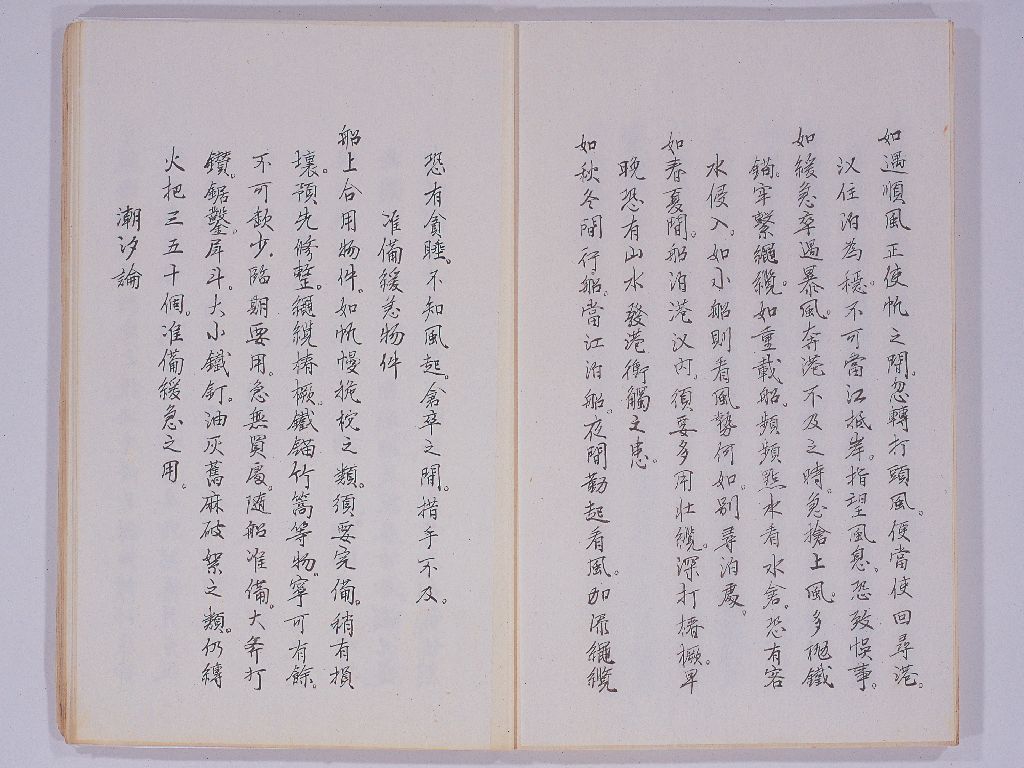 如遇順風正使帆之間。忽轉打頭風。便當使回尋港。
汊住泊為穩。不可當江抵岸。指望風息。恐致悞事。
如緩急卒遇暴風。奔港不及之時。急搶上風。多抛鐵
錨。牢繫繩纜。如重載船。頻頻點水看水倉。恐有客
水侵入。如小船則看風勢何如。別尋泊處。
如春夏間。船泊港汊内。須要多用壯纜。深打樁橛。早
晚恐有山水發港衝觸之患。
如秋冬間行船。當江泊船。夜間勤起看風。加添繩纜
恐有貪睡。不知風起。倉卒之間。措手不及。
准備緩急物件
船上合用物件。如帆幔拖柁之類。須要完備。稍有損
壞。預先修整。繩纜樁橛。鐵錨竹篙等物。寧可有餘。
不可欠少。臨期要用。急無買處。随船准備。大斧打
鑽。鋸鑿。戽斗。大小鐵釘。油灰舊麻破絮之類。仍縛
火把三五十個。准備緩急之用。
潮汐論